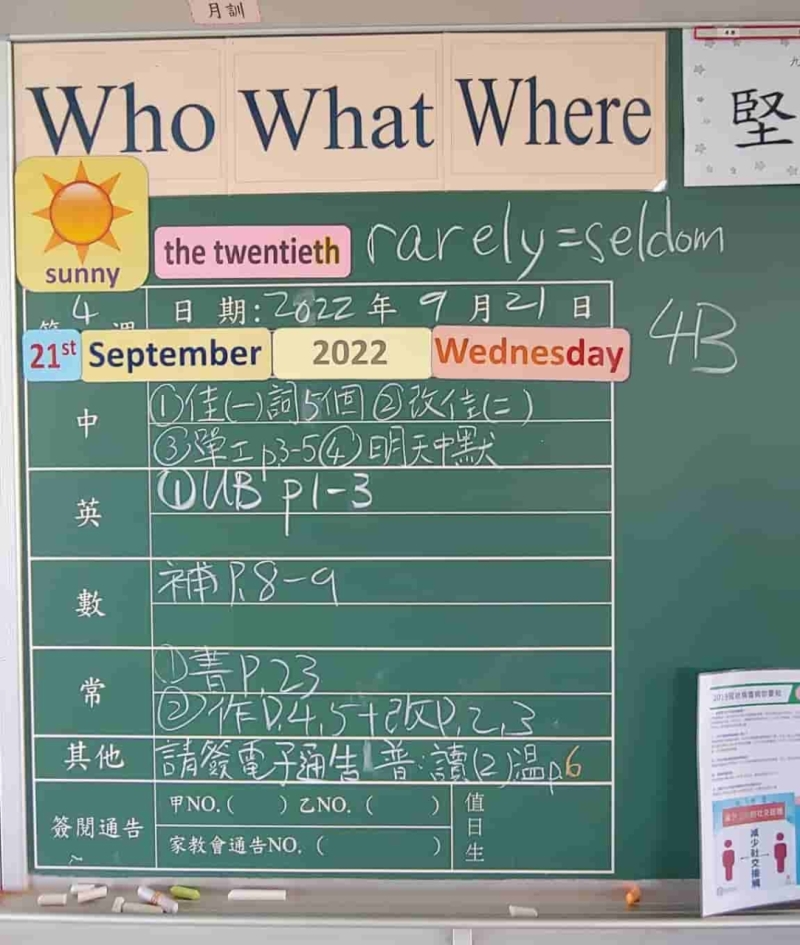 月訓
Who What Where
堅
sunny
the twentieth
rarely=seldom
4
日期:2022年9月21日
21st September 2022 Wednesday
4B
中
①佳(一)詞5個 ②改佳(二)
③單工p.3-5④明天中默
英
①UB p1-3
數
補P.8-9
常
①書P.23
②作P.4,5+改P.2,3
其他
請簽電子通告 普:讀(2)溫p.6
簽閱通告
甲NO.( ) 乙NO.( )
家教會通告NO.( )
值日生
減少社交接觸